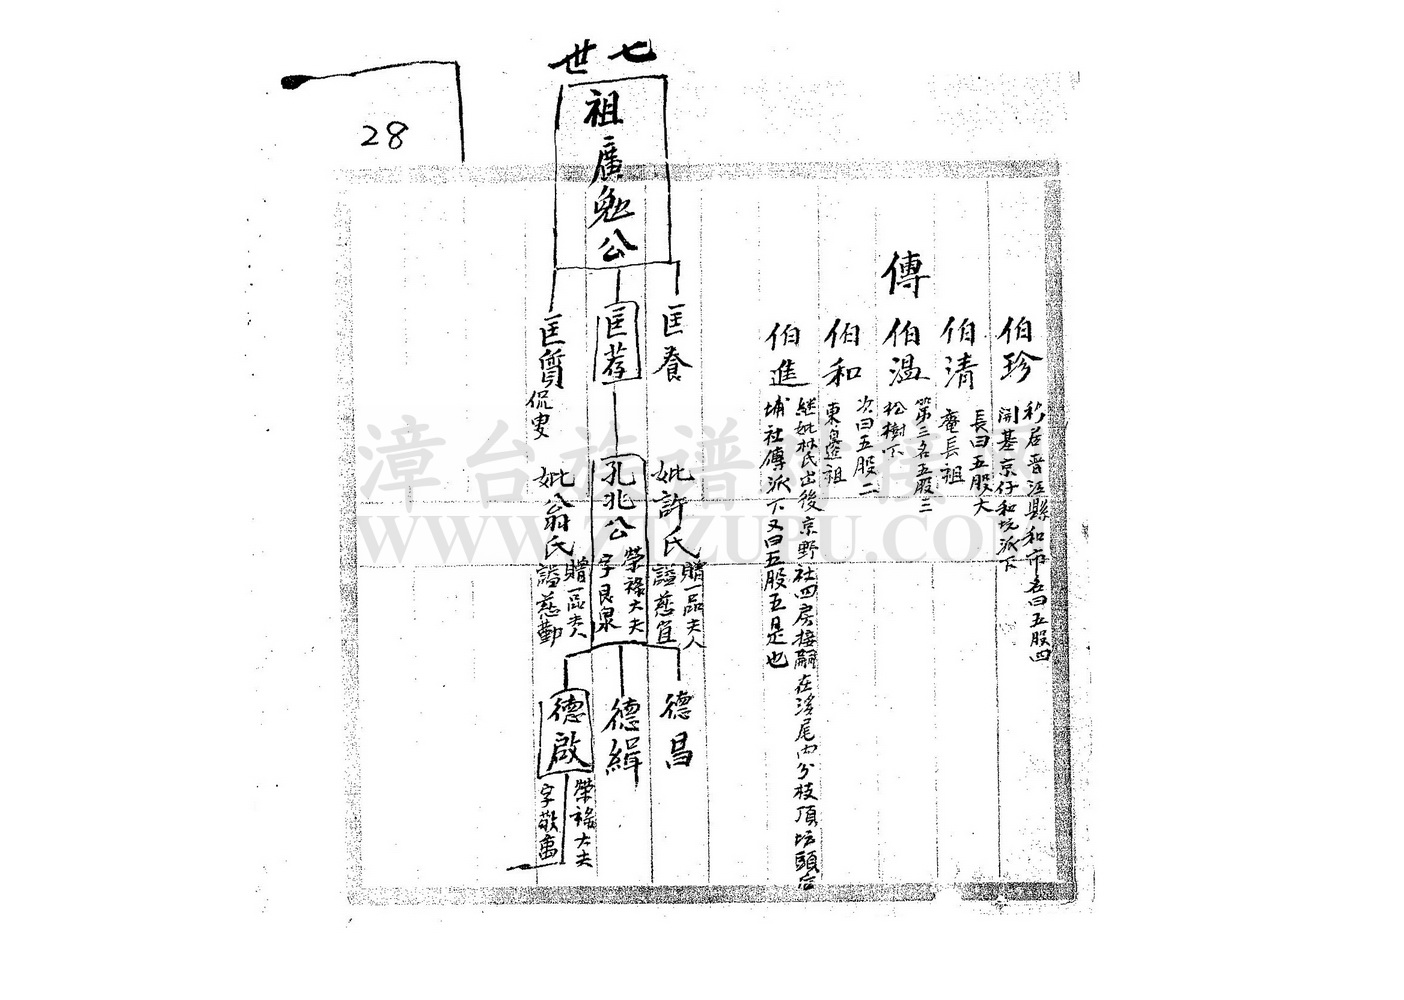 28
傳
伯珍
移居晋江縣和市名曰五股四
開基京仔和坑派下
伯清
長曰五股大
庵長祖
伯溫
第三名五股三
松樹下
伯和
次曰五股二
東邊祖
伯進
继妣林氏出後京野社四房接嗣在溪尾内分枝頂坑頭
埔社傳派下又曰五股五是也
七世
祖廣勉公
匡養
匡荐
匡質
侃叟
妣許氏
贈一品夫人
謚慈宜
孔兆公
榮祿大夫
字良泉
妣翁氏
贈一品夫人
謚慈勤
德昌
德緝
德啟
榮祿大夫
字敬
漳台族谱对接
WWW.ZTZUPU.COM